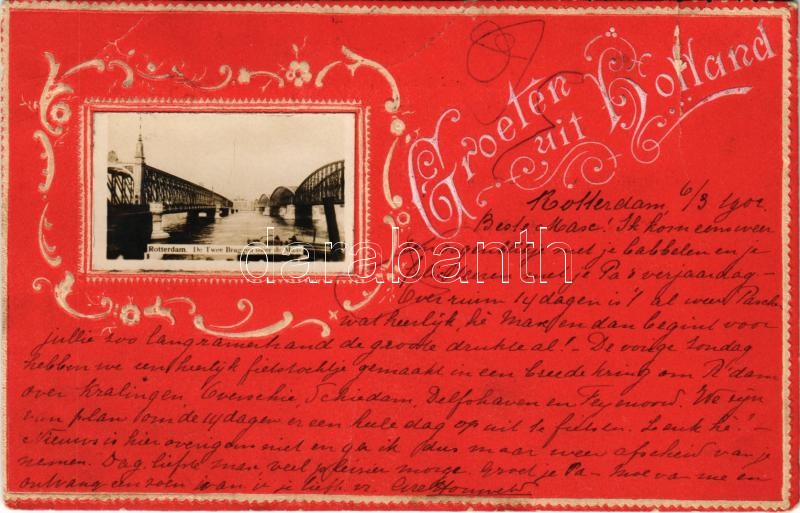 Groeten
uit Holland
Rotterdam. De Twee Bruggen over de Maas
darabanth
Rotterdam, 6/3 1902.
Beste Max! Ik kom eens weer
gezellig met je babbelen en je
feliciteeren met je Pa's verjaardag –
Over ruim 14 dagen is 't al weer Paschen
wat heerlijk, hè Max en dan begint voor
jullie zoo langzamerhand de groote drukte al! – De vorige Zondag
hebben we een heerlijk fietstochtje gemaakt in een breede kring om R'dam
over Kralingen, Overschie, Schiedam, Delfshaven en Feyenoord. We zijn
van plan om de 14 dagen er een heele dag op uit te fietsen. Leuk hè! –
Nieuws is hier overigens niet en ga ik dus maar weer afscheid van je
nemen. Dag, liefste man, veel plezier morgen. Groet je Pa – Moe van me en
ontvang een zoen van je liefh.